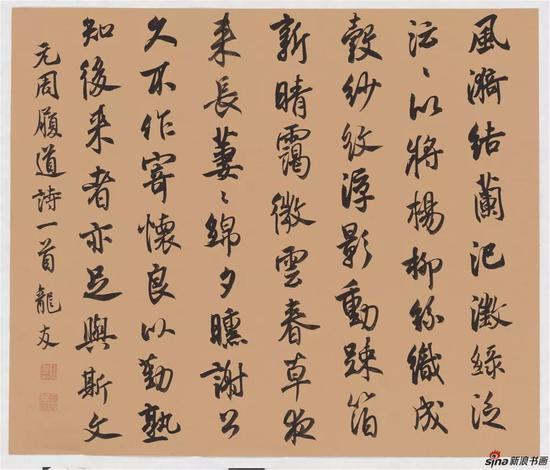 風漪結蘭汜澂綠泛
沄〻以將楊柳絲織成
縠紗紋浮影動踈箔
新晴靄微雲春草夜
来長萋〻綿夕曛謝公
久不作寄懷良以勤孰
知後来者亦足與斯文
元周履道詩一首 龍友
sina 新浪书画